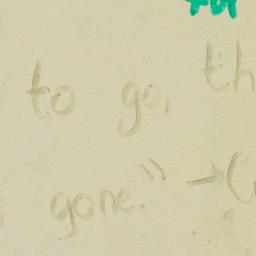 to go, th
gone." - (